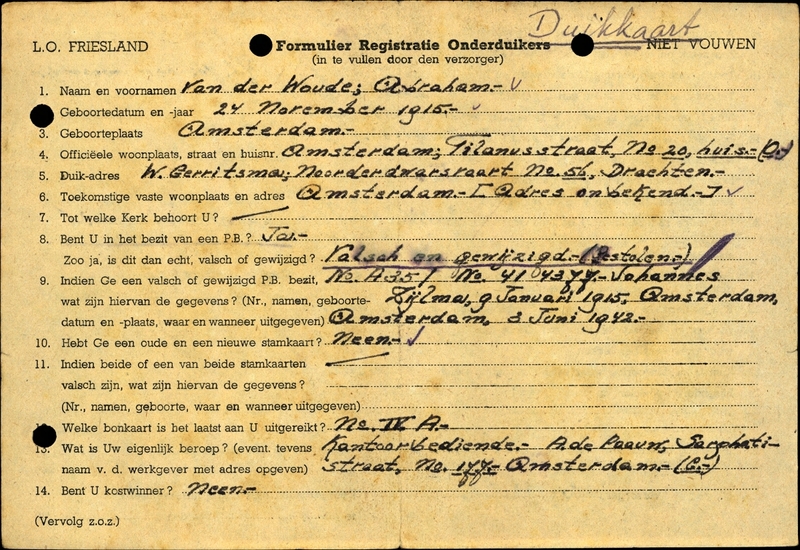 Duikkaart
L.O. FRIESLAND Formulier Registratie Onderduikers NIET VOUWEN
(in te vullen door den verzorger)
1. Naam en voornamen Van der Woude; Abraham.-
Geboortedatum en -jaar 24 November 1915.-
3. Geboorteplaats Amsterdam.-
4. Officiëele woonplaats, straat en huisnr. Amsterdam; Tilanusstraat, No 20, huis.-
5. Duik-adres W. Gerritsma; Noorderdwarsvaart No. 56, Drachten.-
6. Toekomstige vaste woonplaats en adres Amsterdam.- [Adres onbekend.-]
7. Tot welke Kerk behoort U?
8. Bent U in het bezit van een P.B.? Ja.-
Zoo ja, is dit dan echt, valsch of gewijzigd? Valsch en gewijzigd.- (Gestolen.-)
9. Indien Ge een valsch of gewijzigd P.B. bezit, No. A 35 / No. 414377.- Johannes
wat zijn hiervan de gegevens? (Nr., namen, geboorte- Zijlma, 9 Januari 1915, Amsterdam,
datum en -plaats, waar en wanneer uitgegeven) Amsterdam, 3 Juni 1942.-
10. Hebt Ge een oude en een nieuwe stamkaart? Neen.-
11. Indien beide of een van beide stamkaarten
valsch zijn, wat zijn hiervan de gegevens?
(Nr., namen, geboorte, waar en wanneer uitgegeven)
Welke bonkaart is het laatst aan U uitgereikt? No. IV A.-
13. Wat is Uw eigenlijk beroep? (event. tevens Kantoorbediende.- A. de Paauw, Sarphati-
naam v. d. werkgever met adres opgeven) straat, No. 177.- Amsterdam.- (C.-)
14. Bent U kostwinner? Neen.-
(Vervolg z.o.z.)